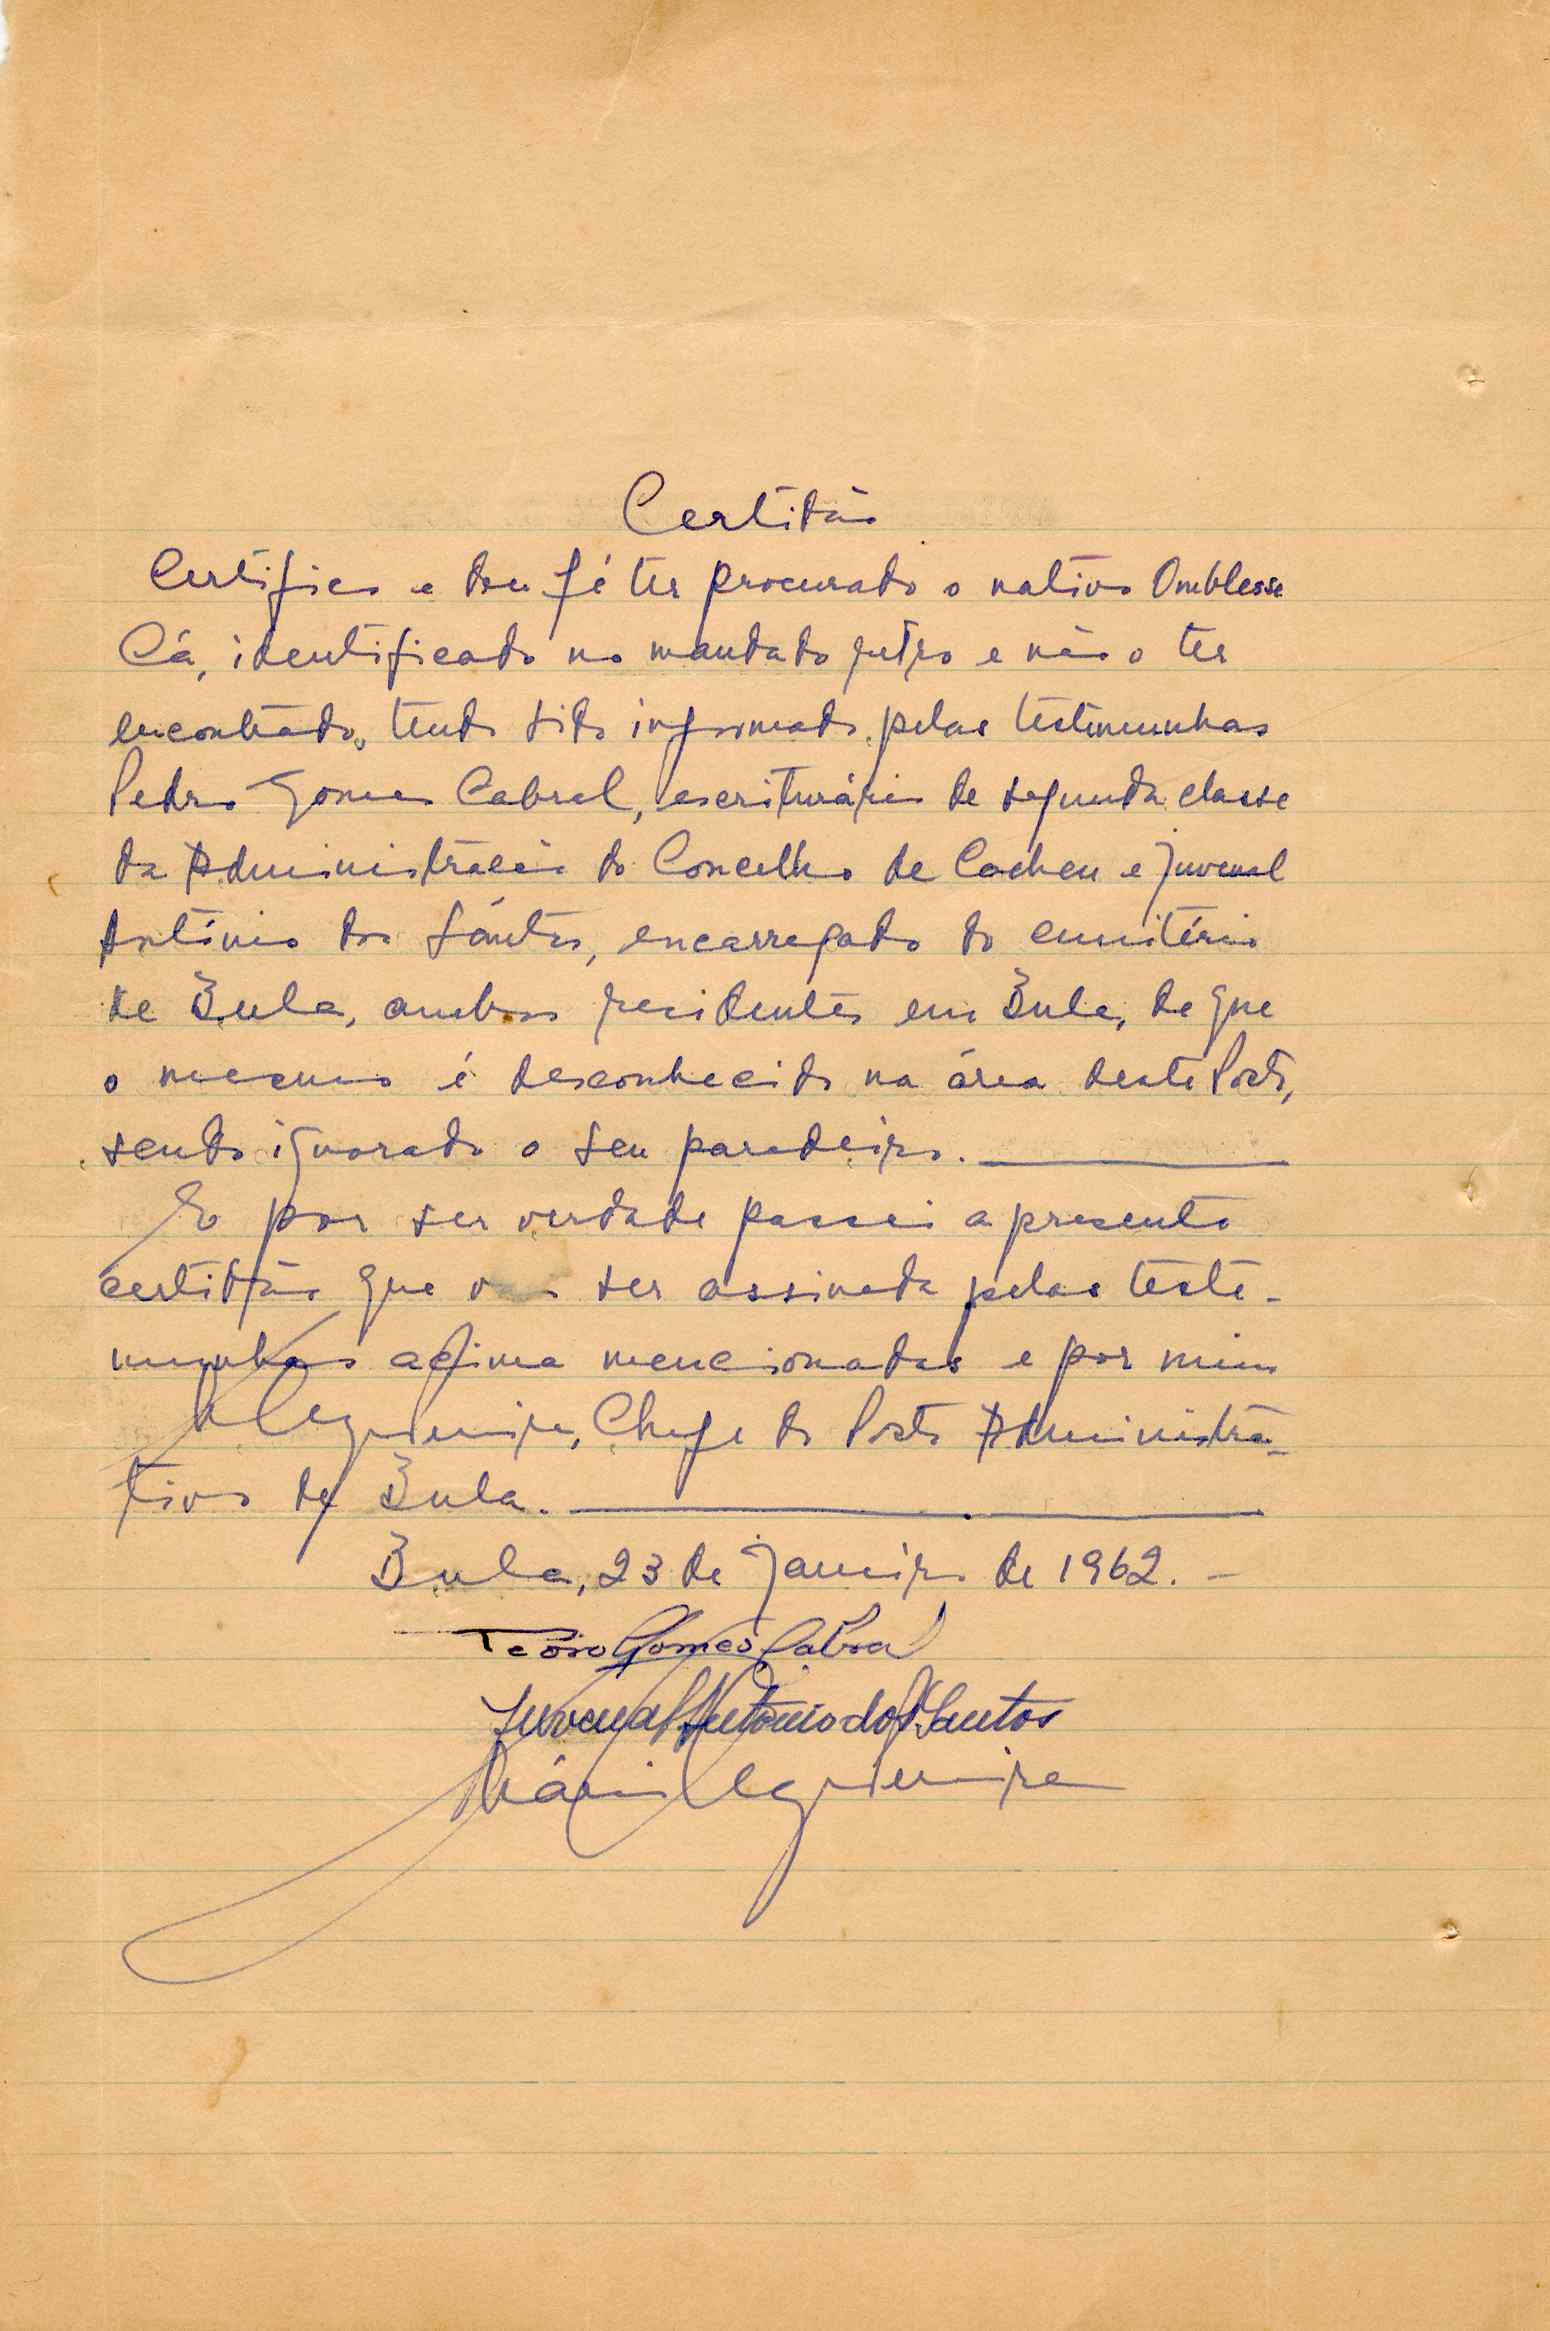 Certidão
Certifico e dou fé ter procurado o nativo Omblesse
Cá, identificado no mandado retro e não o ter
encontrado, tendo sido informado pelas testemunhas
Pedro Gomes Cabral, escriturário de segunda classe
da Administração do Concelho de Cacheu e Juvenal
António dos Sántos, encarregado do cemitério
de Bula, ambos residentes em Bula, de que
o mesmo é desconhecido na área deste Posto,
sendo ignorado o seu paradeiro.
E por ser verdade passei a presente
certidão que vai ser assinada pelas teste-
munhas acima mencionadas e por mim
Chefe do Posto Administra-
tivo de Bula.
Bula, 23 de Janeiro de 1962. -
Pedro Gomes Cabral
Juvenal António dos Santos
Mário